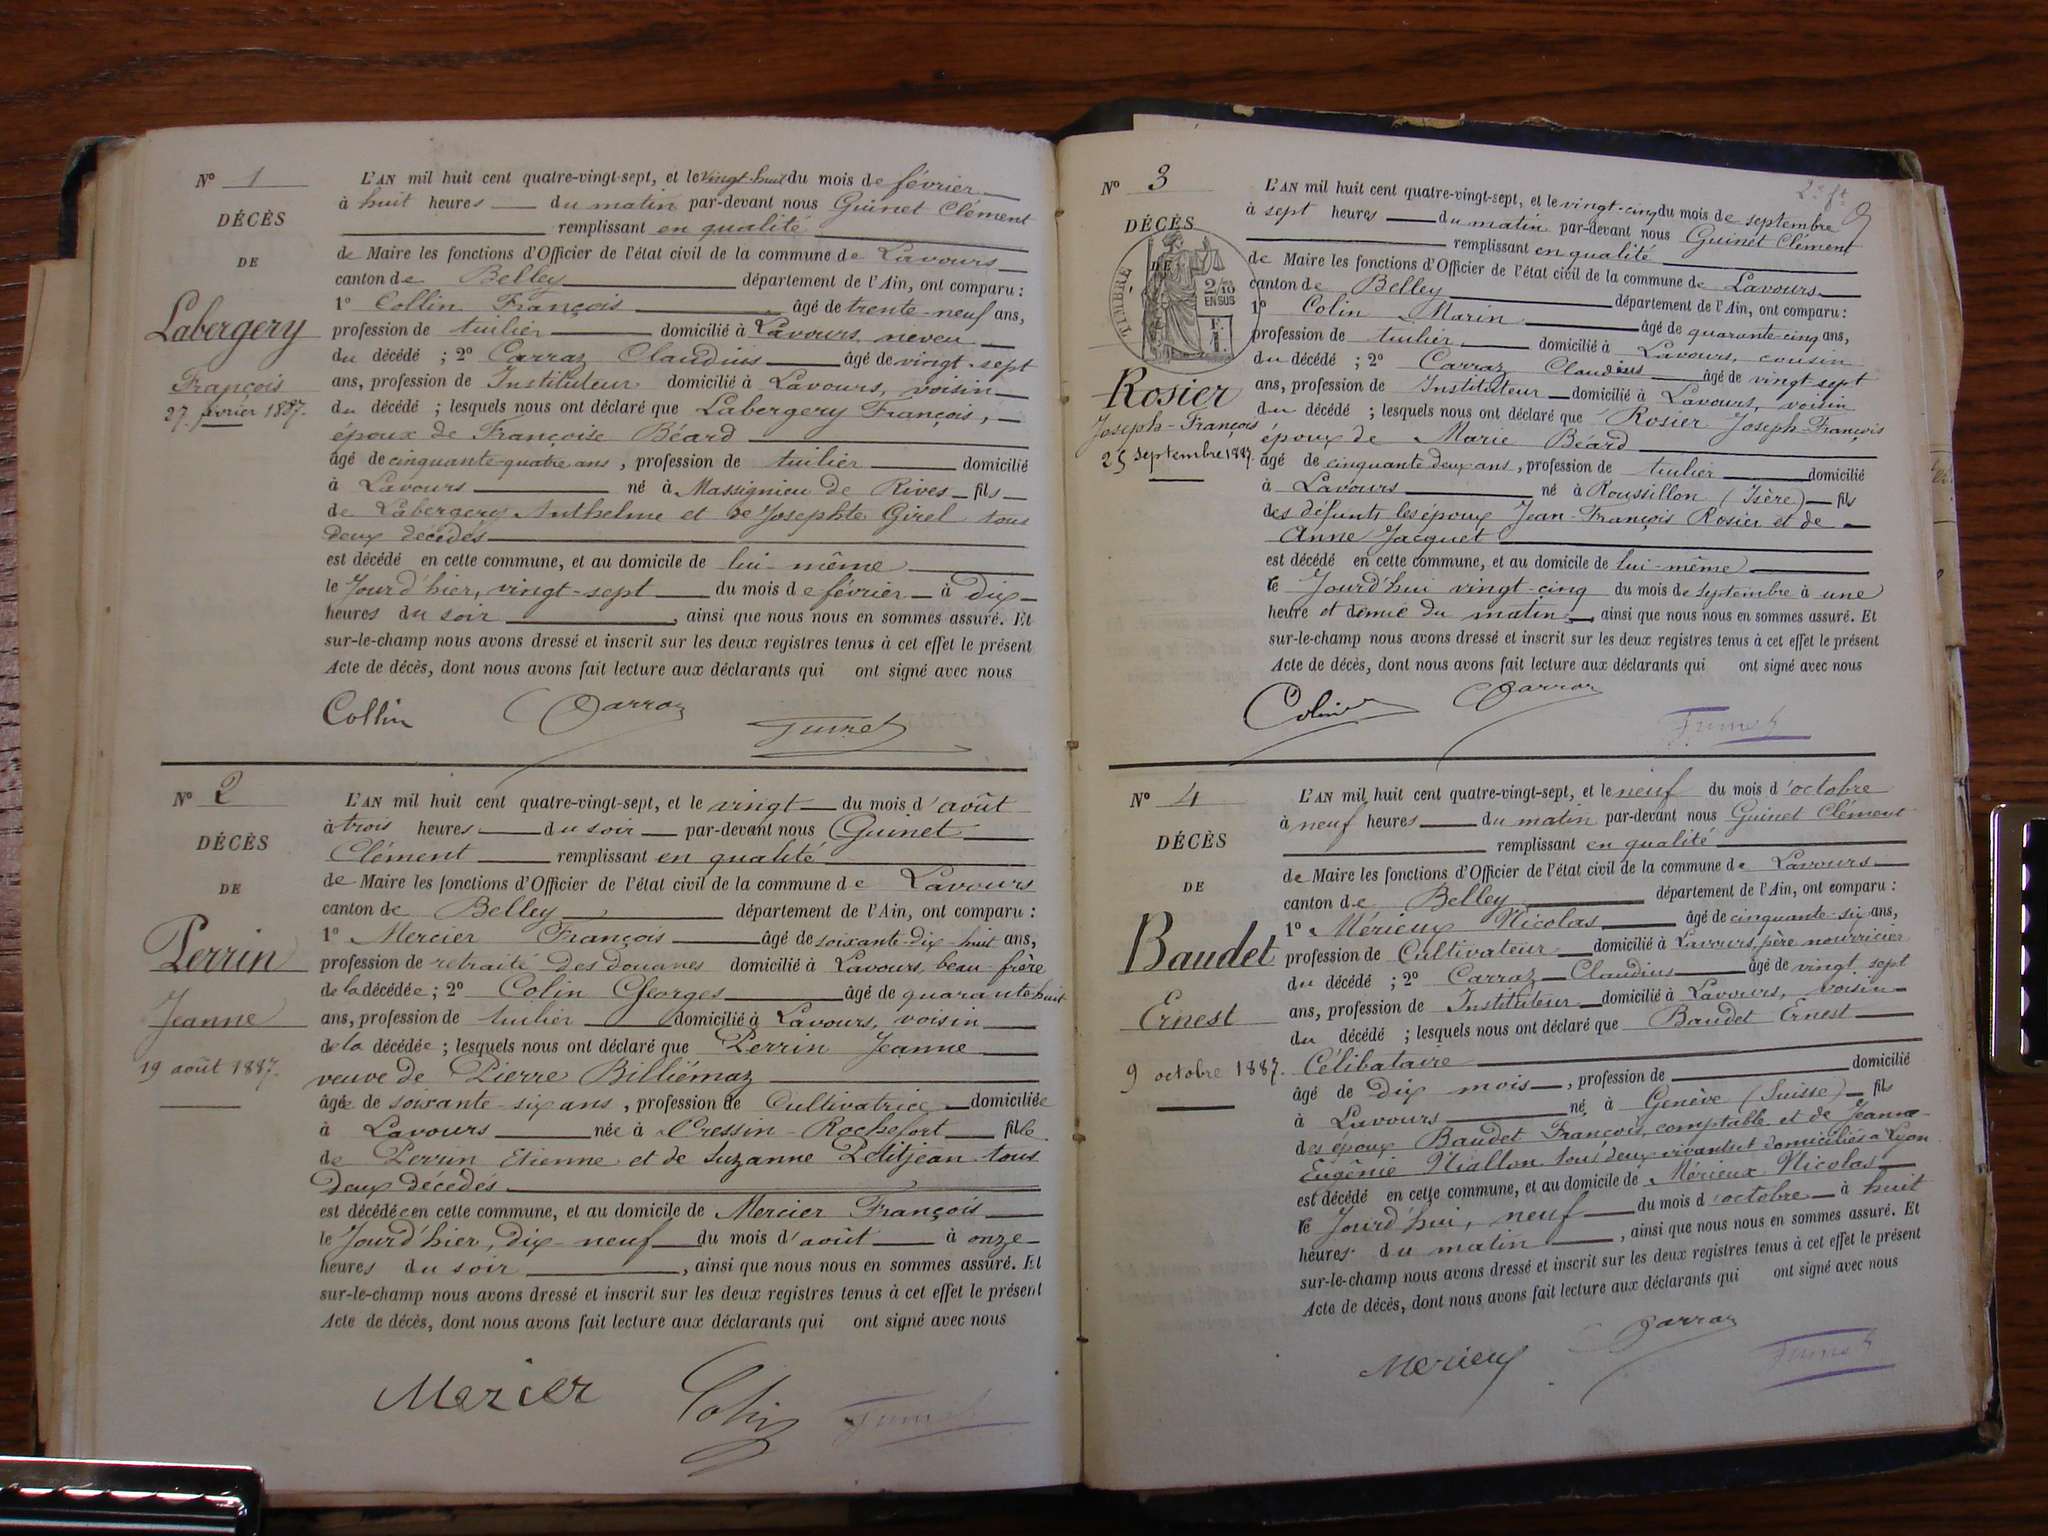 N° 1
DÉCÈS
DE
Labergery
François
27 février 1887.
L'AN mil huit cent quatre-vingt-sept, et le vingt-huit du mois de février
à huit heures du matin par-devant nous Guinet Clément
remplissant en qualité
de Maire les fonctions d'Officier de l'état civil de la commune de Lavours
canton de Belley département de l'Ain, ont comparu :
1° Collin François âgé de trente-neuf ans,
profession de tuilier domicilié à Lavours, neveu
du décédé ; 2° Carraz Claudius âgé de vingt-sept
ans, profession de Instituteur domicilié à Lavours, voisin
du décédé ; lesquels nous ont déclaré que Labergery François,
époux de Françoise Béard
âgé de cinquante-quatre ans, profession de tuilier domicilié
à Lavours né à Massignieu de Rives fils
de Labergery Anthelme et de Josephte Girel tous
deux décédés
est décédé en cette commune, et au domicile de lui-même
le Jourd'hier, vingt-sept du mois de février à dix
heures du soir, ainsi que nous nous en sommes assuré. Et
sur-le-champ nous avons dressé et inscrit sur les deux registres tenus à cet effet le présent
Acte de décès, dont nous avons fait lecture aux déclarants qui ont signé avec nous
Collin Carraz Guinet
N° 2
DÉCÈS
DE
Perrin
Jeanne
19 août 1887.
L'AN mil huit cent quatre-vingt-sept, et le vingt du mois d'août
à trois heures du soir par-devant nous Guinet
Clément remplissant en qualité
de Maire les fonctions d'Officier de l'état civil de la commune de Lavours
canton de Belley département de l'Ain, ont comparu :
1° Mercier François âgé de soixante-dix-huit ans,
profession de retraité des Douanes domicilié à Lavours, beau-frère
de la décédée ; 2° Colin Georges âgé de quarante-huit
ans, profession de tuilier domicilié à Lavours, voisin
de la décédée ; lesquels nous ont déclaré que Perrin Jeanne
veuve de Pierre Billiémaz
âgée de soixante-six ans, profession de Cultivatrice domiciliée
à Lavours née à Cressin-Rochefort fille
de Perrin Etienne et de Suzanne Petitjean tous
deux décédés
est décédée en cette commune, et au domicile de Mercier François
le Jourd'hier, dix-neuf du mois d'août à onze
heures du soir, ainsi que nous nous en sommes assuré. Et
sur-le-champ nous avons dressé et inscrit sur les deux registres tenus à cet effet le présent
Acte de décès, dont nous avons fait lecture aux déclarants qui ont signé avec nous
Mercier Colin Guinet
N° 3
DÉCÈS
DE
TIMBRE
2/10
EN SUS
Rosier
Joseph-François
25 septembre 1887.
L'AN mil huit cent quatre-vingt-sept, et le vingt-cinq du mois de septembre
à sept heures du matin par-devant nous Guinet Clément
remplissant en qualité
de Maire les fonctions d'Officier de l'état civil de la commune de Lavours
canton de Belley département de l'Ain, ont comparu :
1° Colin Marin âgé de quarante-cinq ans,
profession de tuilier domicilié à Lavours, cousin
du décédé ; 2° Carraz Claudius âgé de vingt-sept
ans, profession de Instituteur domicilié à Lavours, voisin
du décédé ; lesquels nous ont déclaré que Rosier Joseph-François
époux de Marie Béard
âgé de cinquante deux ans, profession de tuilier domicilié
à Lavours né à Roussillon (Isère) fils
des défunts les époux Jean-François Rosier et de
Anne Jacquet
est décédé en cette commune, et au domicile de lui-même
le Jourd'hui vingt-cinq du mois de septembre à une
heure et demie du matin, ainsi que nous nous en sommes assuré. Et
sur-le-champ nous avons dressé et inscrit sur les deux registres tenus à cet effet le présent
Acte de décès, dont nous avons fait lecture aux déclarants qui ont signé avec nous
Colin Carraz Guinet
N° 4
DÉCÈS
DE
Baudet
Ernest
9 octobre 1887.
L'AN mil huit cent quatre-vingt-sept, et le neuf du mois d'octobre
à neuf heures du matin par-devant nous Guinet Clément
remplissant en qualité
de Maire les fonctions d'Officier de l'état civil de la commune de Lavours
canton de Belley département de l'Ain, ont comparu :
1° Mérieux Nicolas âgé de cinquante-six ans,
profession de Cultivateur domicilié à Lavours, père nourricier
du décédé ; 2° Carraz Claudius âgé de vingt-sept
ans, profession de Instituteur domicilié à Lavours, voisin
du décédé ; lesquels nous ont déclaré que Baudet Ernest
Célibataire
âgé de dix mois, profession de domicilié
à Lavours né à Genève (Suisse) fils
des époux Baudet François, comptable et de Jeanne
Eugénie Niallon tous deux vivants et domiciliés à Lyon
est décédé en cette commune, et au domicile de Mérieux Nicolas
le Jourd'hui, neuf du mois d'octobre à huit
heures du matin, ainsi que nous nous en sommes assuré. Et
sur-le-champ nous avons dressé et inscrit sur les deux registres tenus à cet effet le présent
Acte de décès, dont nous avons fait lecture aux déclarants qui ont signé avec nous
Merieux Carraz Guinet